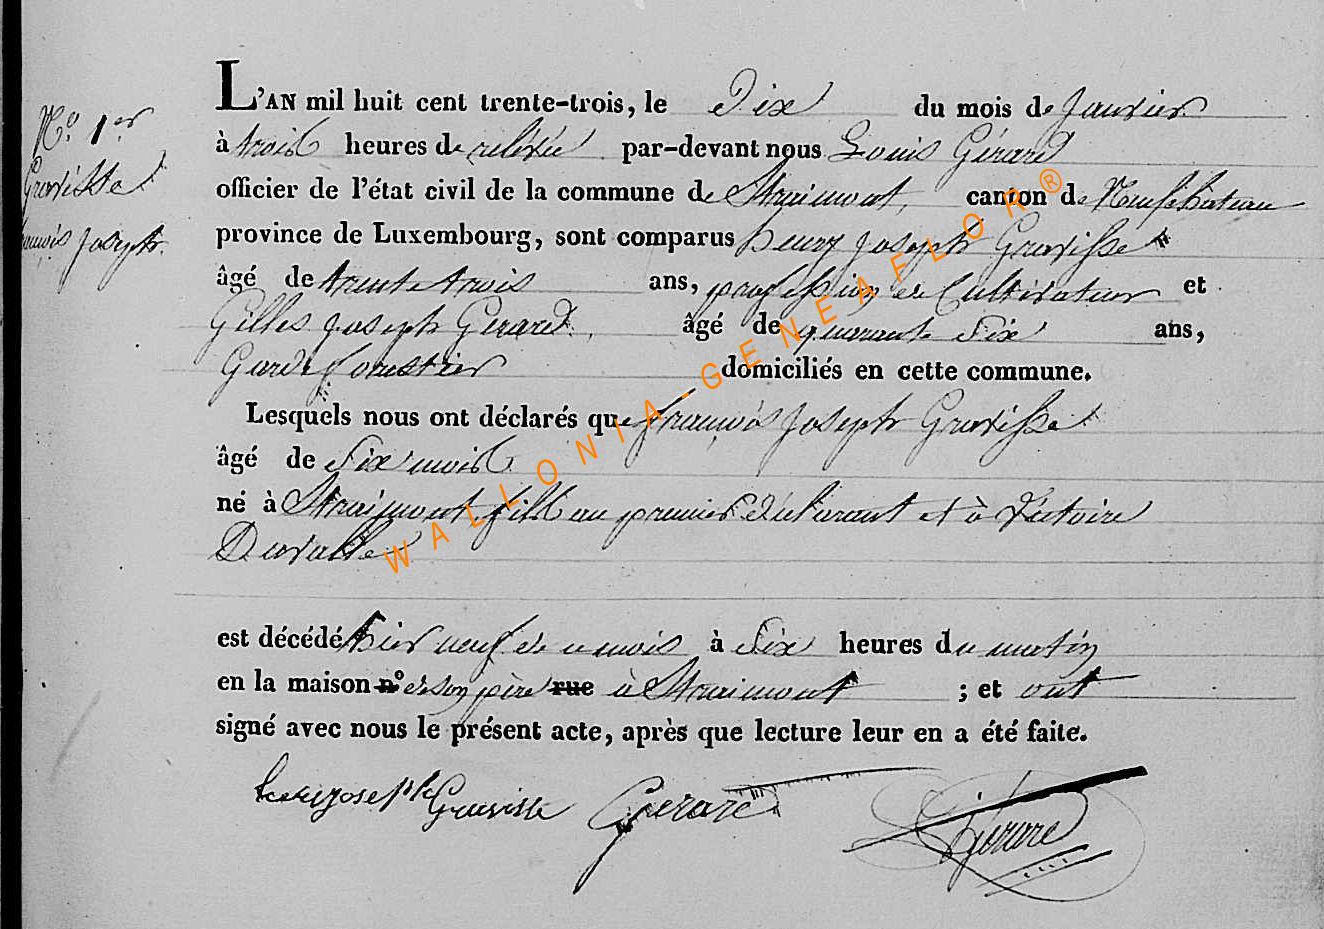 N.o 1er
Gravisse
François Joseph.
L'AN mil huit cent trente-trois, le Dix du mois de Janvier
à trois heures de relevée par-devant nous Louis Gérard
officier de l'état civil de la commune de Straimont, canton de Neufchateau
province de Luxembourg, sont comparus henry joseph Gravisse
âgé de trente trois ans, profession de Cultivateur et
Gilles joseph Gerard, âgé de quarante Six ans,
Garde forestier domiciliés en cette commune.
Lesquels nous ont déclarés que françois joseph Gravisse
âgé de Six mois
né à Straimont fils au premier déclarant et à Victoire
est décédé hier neuf de ce mois à Six heures du matin
en la maison n° de son père rue à Straimont ; et ont
signé avec nous le présent acte, après que lecture leur en a été faite.
henry joseph Gravisse Gerard Gérard
WALLONIA-GENEAFLOR®